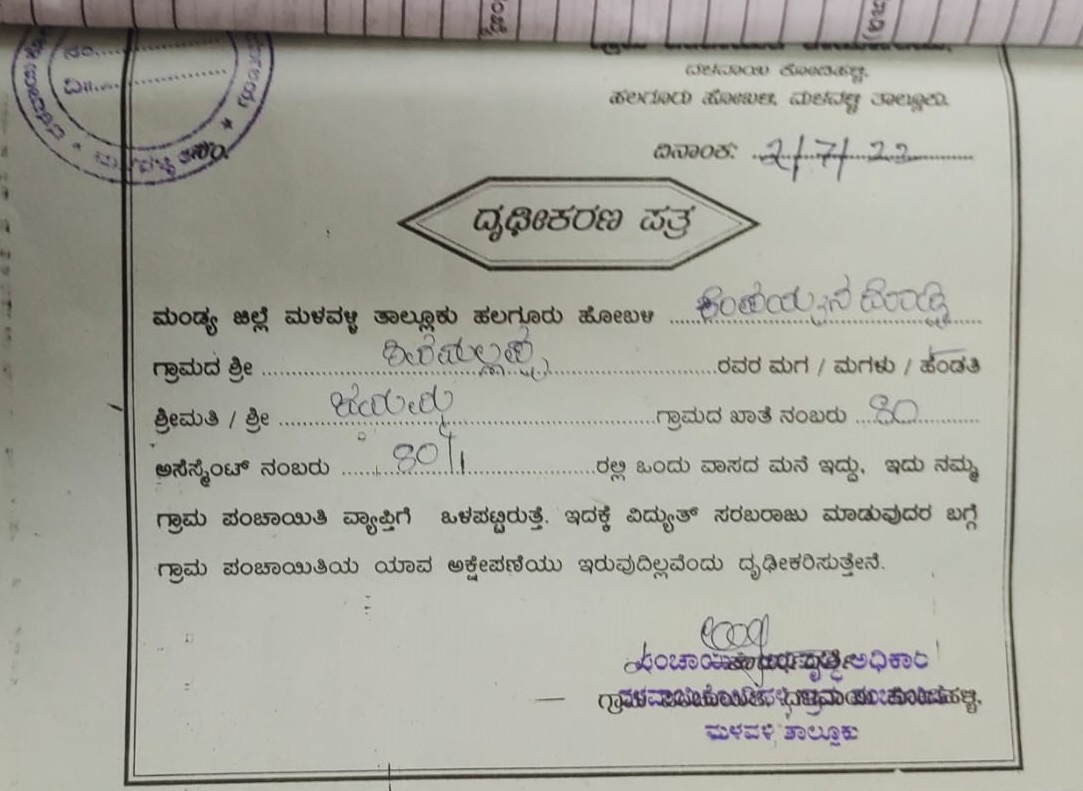 ನಂ.....
ದಿ||.....
ದಳವಾಯಿ ಕೋಡಿಹಳ್ಳಿ,
ಹಲಗೂರು ಹೋಬಳಿ, ಮಳವಳ್ಳಿ ತಾಲ್ಲೂಕು.
ದಿನಾಂಕ: 2/7/22
ದೃಢೀಕರಣ ಪತ್ರ
ಮಂಡ್ಯ ಜಿಲ್ಲೆ ಮಳವಳ್ಳಿ ತಾಲ್ಲೂಕು ಹಲಗೂರು ಹೋಬಳಿ ಕೆಂಪಯ್ಯನ ದೊಡ್ಡಿ
ಗ್ರಾಮದ ಶ್ರೀ ..... ರವರ ಮಗ / ಮಗಳು / ಹೆಂಡತಿ
ಶ್ರೀಮತಿ / ಶ್ರೀ ..... ಗ್ರಾಮದ ಖಾತೆ ನಂಬರು 80
ಅಸೆಸ್ಮೆಂಟ್ ನಂಬರು 80/1 ರಲ್ಲಿ ಒಂದು ವಾಸದ ಮನೆ ಇದ್ದು, ಇದು ನಮ್ಮ
ಗ್ರಾಮ ಪಂಚಾಯಿತಿ ವ್ಯಾಪ್ತಿಗೆ ಒಳಪಟ್ಟಿರುತ್ತೆ. ಇದಕ್ಕೆ ವಿದ್ಯುತ್ ಸರಬರಾಜು ಮಾಡುವುದರ ಬಗ್ಗೆ
ಗ್ರಾಮ ಪಂಚಾಯಿತಿಯ ಯಾವ ಅಕ್ಷೇಪಣೆಯು ಇರುವುದಿಲ್ಲವೆಂದು ದೃಢೀಕರಿಸುತ್ತೇನೆ.
ಅಧಿಕಾರಿ
ಮಳವಳ್ಳಿ ತಾಲ್ಲೂಕು